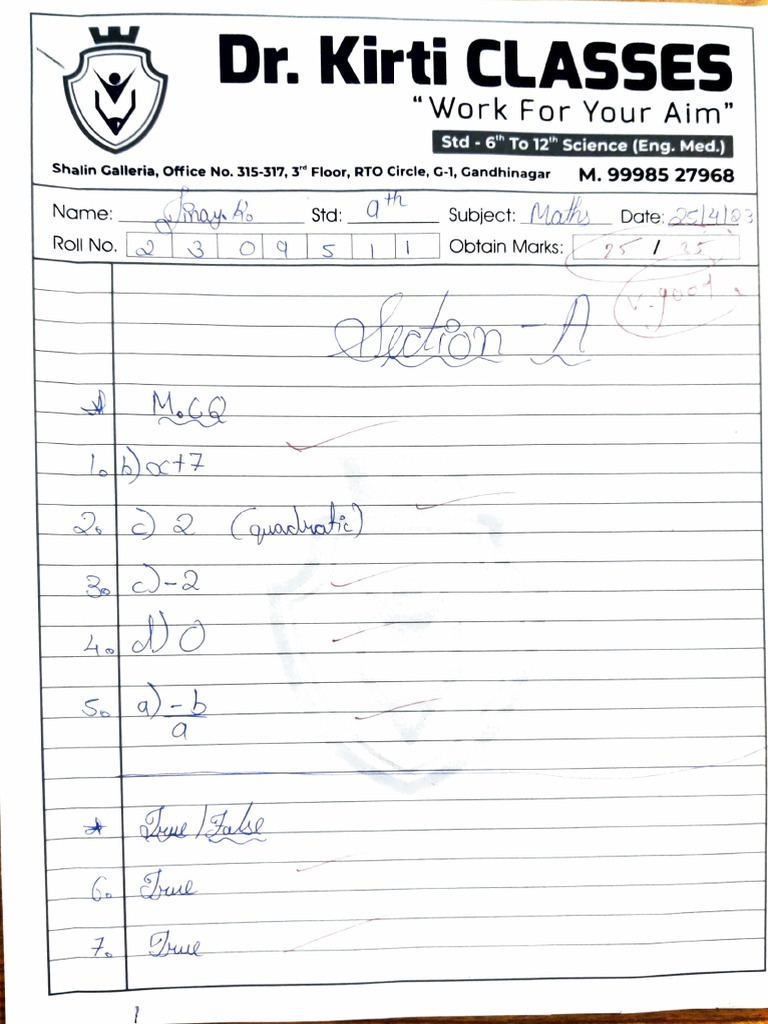 Dr. Kirti CLASSES
"Work For Your Aim"
Std - 6th To 12th Science (Eng. Med.)
Shalin Galleria, Office No. 315-317, 3rd Floor, RTO Circle, G-1, Gandhinagar M. 99985 27968
Name: Std: 9th Subject: Maths Date: 25/4/23
Roll No. 2 3 0 9 5 1 1 Obtain Marks: 25 / 35
v. good
Section - A
* M.C.Q
1. b) x+7
2. c) 2 (quadratic)
3. c) -2
4. d) 0
5. a) -b
a
* True / False
6. True
7. True
1